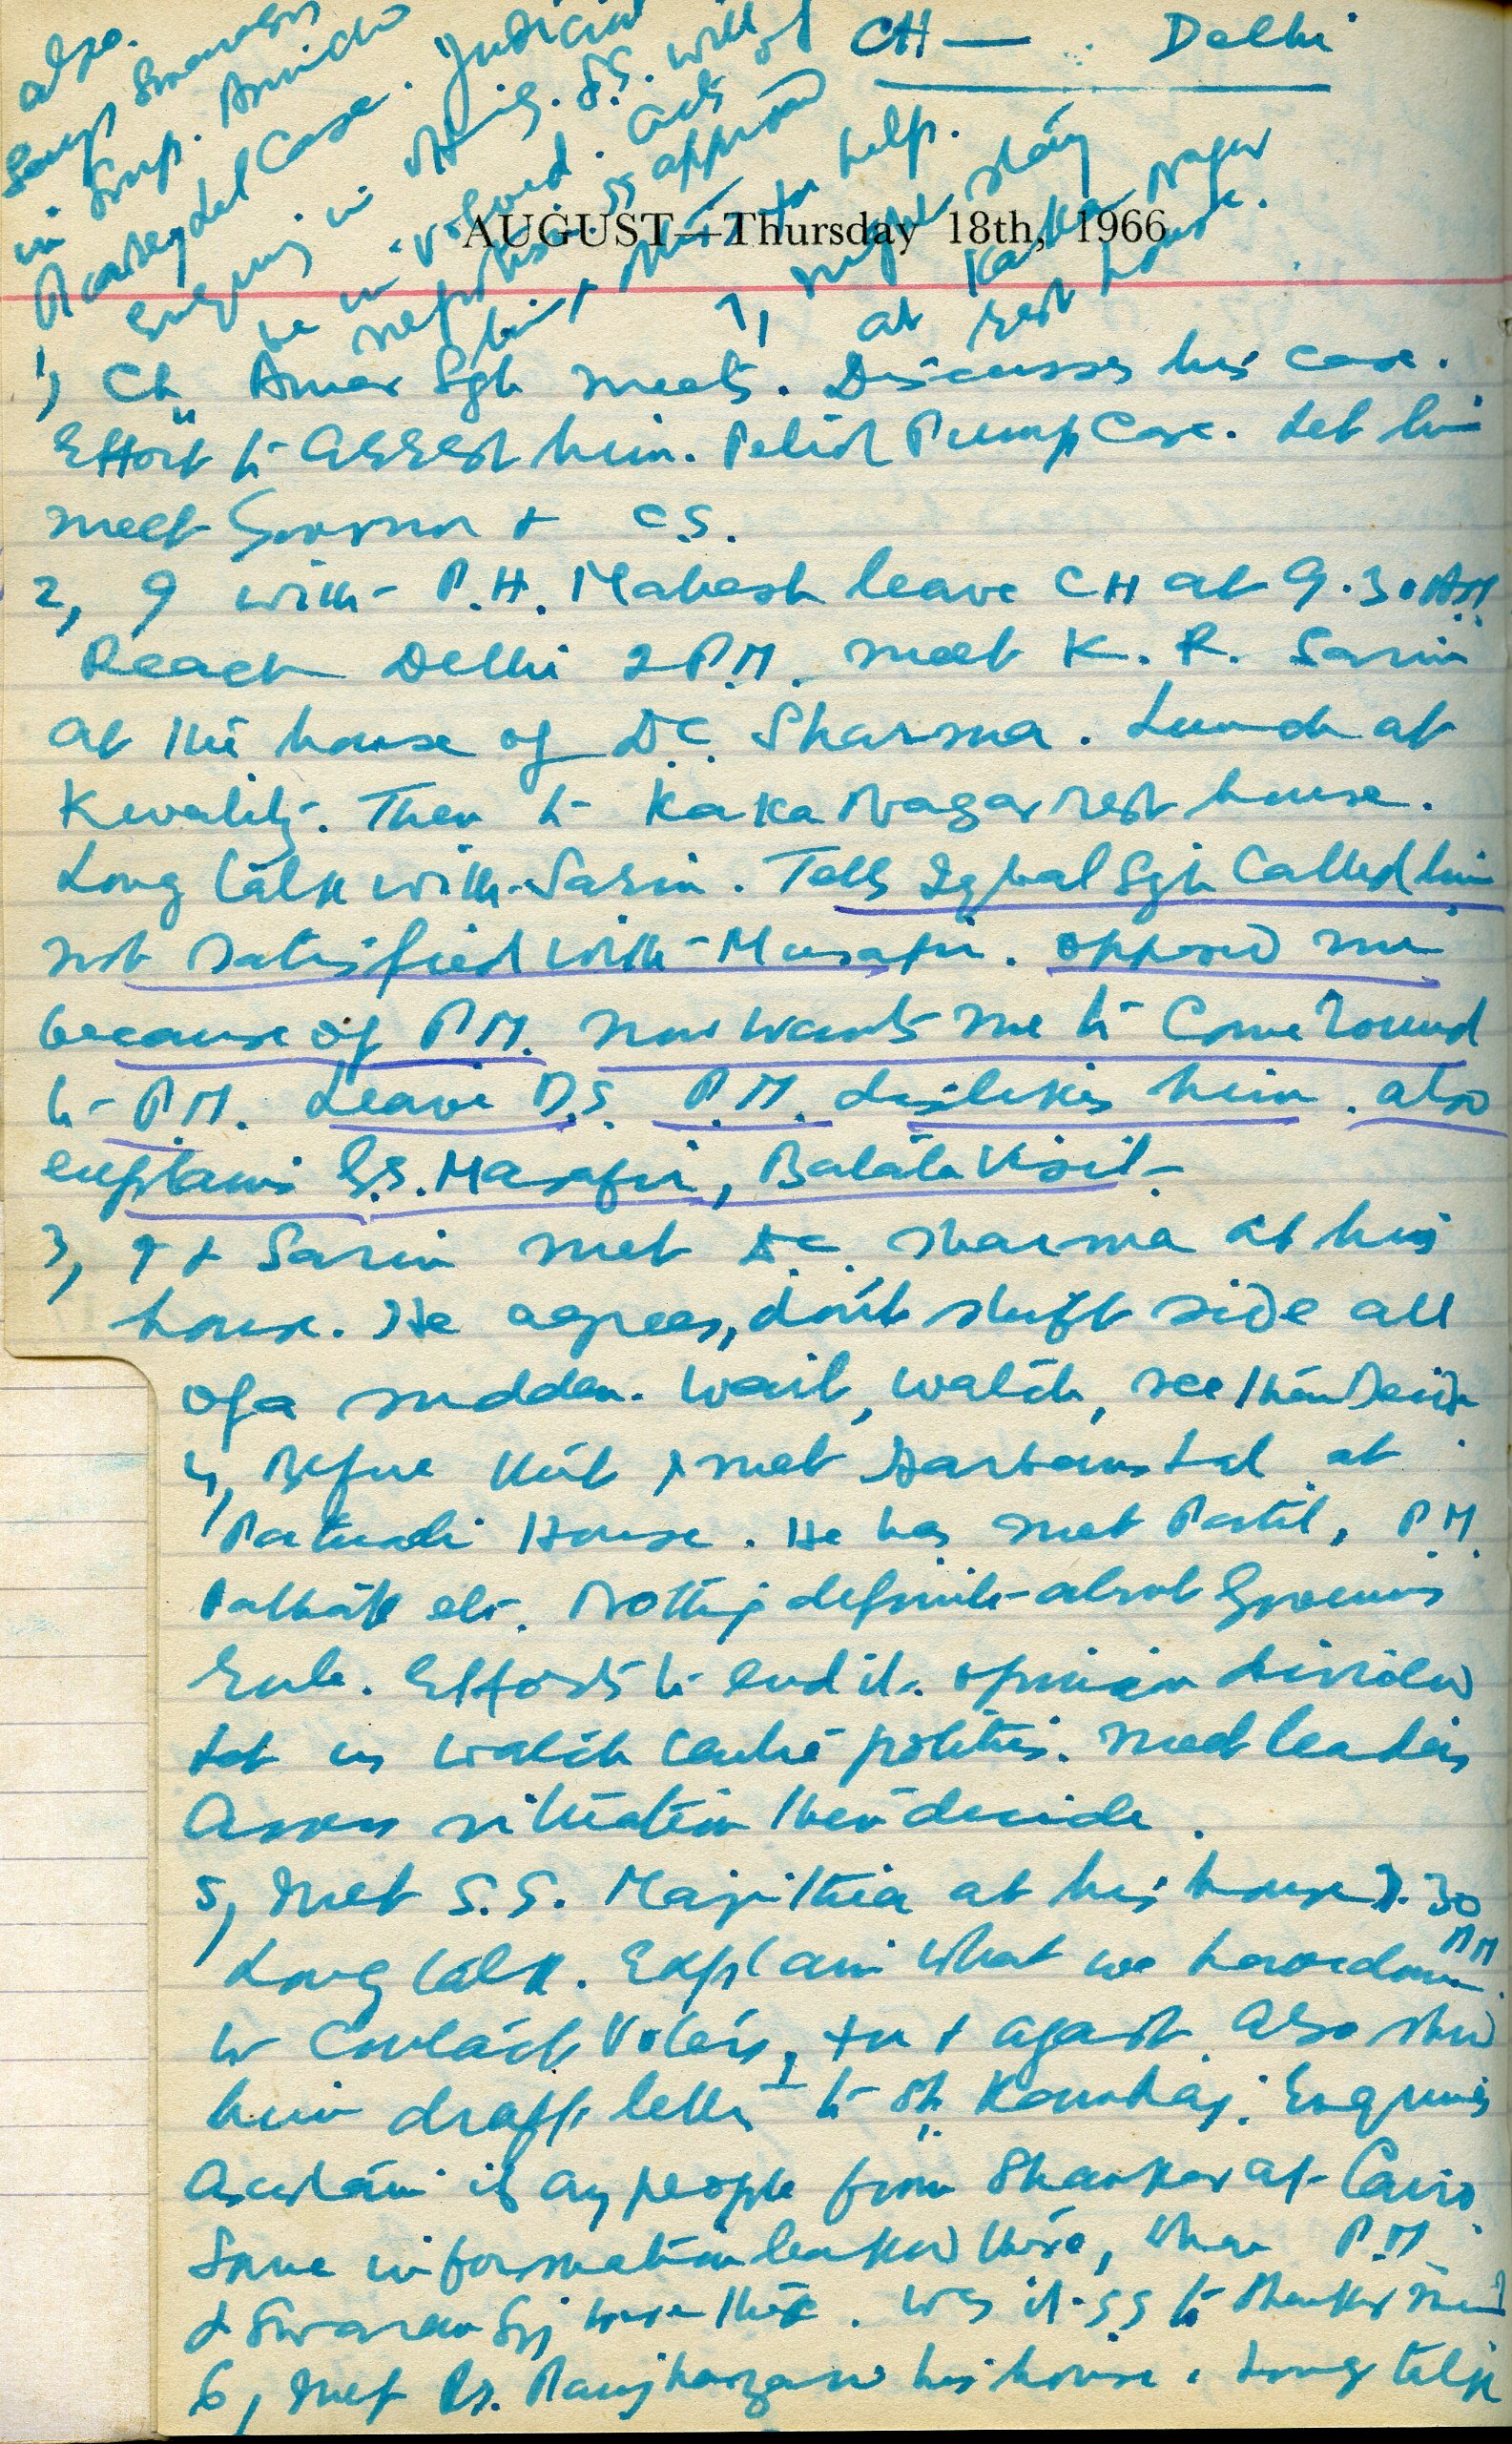 CH — Delhi
AUGUST—Thursday 18th, 1966
also.
Swaran
in
case. Judicial
Enquiry in S.S. will
be involved. acts of
approver
but for help.
7, night stay
at Kaka Nagar
rest house.
1, Ch. Amar Sgh meets. Discusses his case.
Effort to arrest him. Petrol Pump Case. Let him
meet Governor + C.S.
2, I with P.H. Mahesh leave CH at 9.30 AM
Reach Delhi 2 P.M. meet K. R. Sarin
at the house of D.C. Sharma. Lunch at
Kwality. Then to Kaka Nagar rest house.
Long talk with Sarin. Tells Iqbal Sgh Called him
not satisfied with Musafir. opposed me
because of P.M. now wants me to Come round
to P.M. Leave D.S. P.M. dislikes him. also
explains G.S. Musafir, Batala Visit.
3, I + Sarin met D.C. Sharma at his
house. He agrees, don't shift side all
of a sudden. Wait, watch, see then Decide
4, Before this I met Harbans Lal at
Pataudi House. He has met Patil, P.M.
Pathak etc. Nothing definite about Governors
Rule. Efforts to end it. opinion divided
Let us watch centre politics. meet leaders
Assess situation then decide.
5, Met S.S. Majithia at his house 7.30
PM
Long talk. Explain what we have done
to Contact Voters, for + against. Also show
him draft letter to Sh. Kamraj. Enquiries
Ascertain if any people from Shanker at Cairo.
Some information leaked there, when P.M.
& Swaran Sgh were there. Was it SS to
6, Met Dr. his house. Long talk